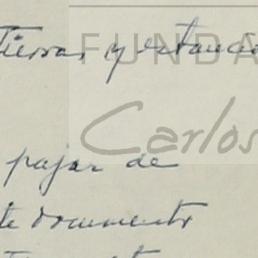 Tierras y estancia
FUNDA
Carlos
pajar de
te documento